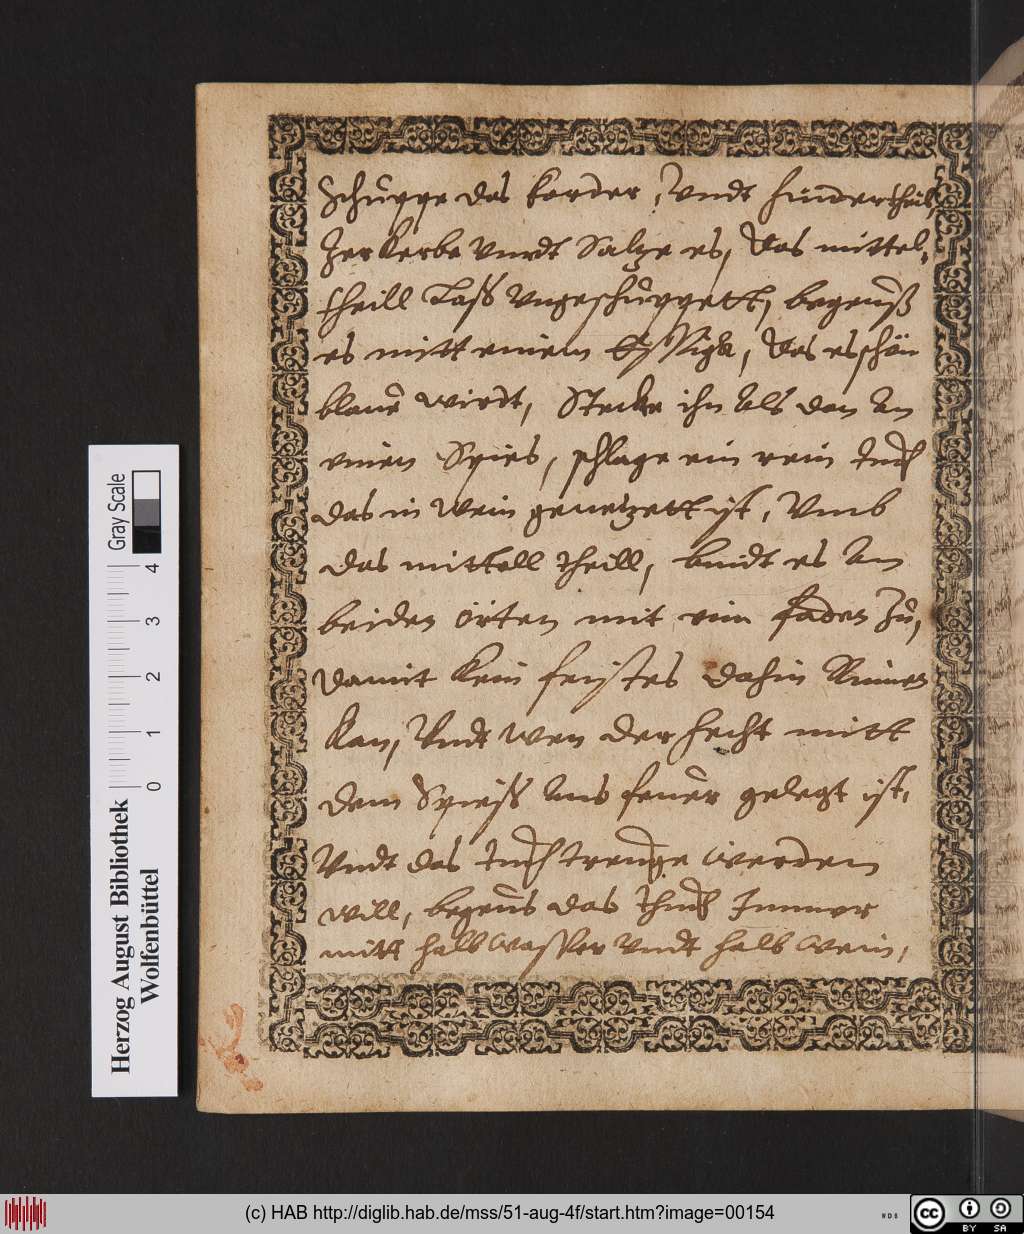 Schuppe das forder, Undt hindertheil,
Zerkerbe Undt Saltze es, Das mittel,
theill Lass Ungeschuppett, begeuß
es mitt einem Essigk, Das es schön
blauw wirdt, Stecke ihn Als dan An
einen Spies, schlage ein rein tuch
das in Wein genetzett ist, Umb
das mittell theill, bindt es An
beiden örten mit eim faden Zu,
damit kein feistes dahin Rinnen
kan, Undt wen der hecht mitt
dem Spiess Ans feuer gelegt ist,
Undt das tuch treuge werden
will, begeus das thuch Immer
mitt halb wasser Undt halb wein,
Herzog August Bibliothek
Wolfenbüttel
Gray Scale
0 1 2 3 4
(c) HAB http://diglib.hab.de/mss/51-aug-4f/start.htm?image=00154
WDB
cc BY SA